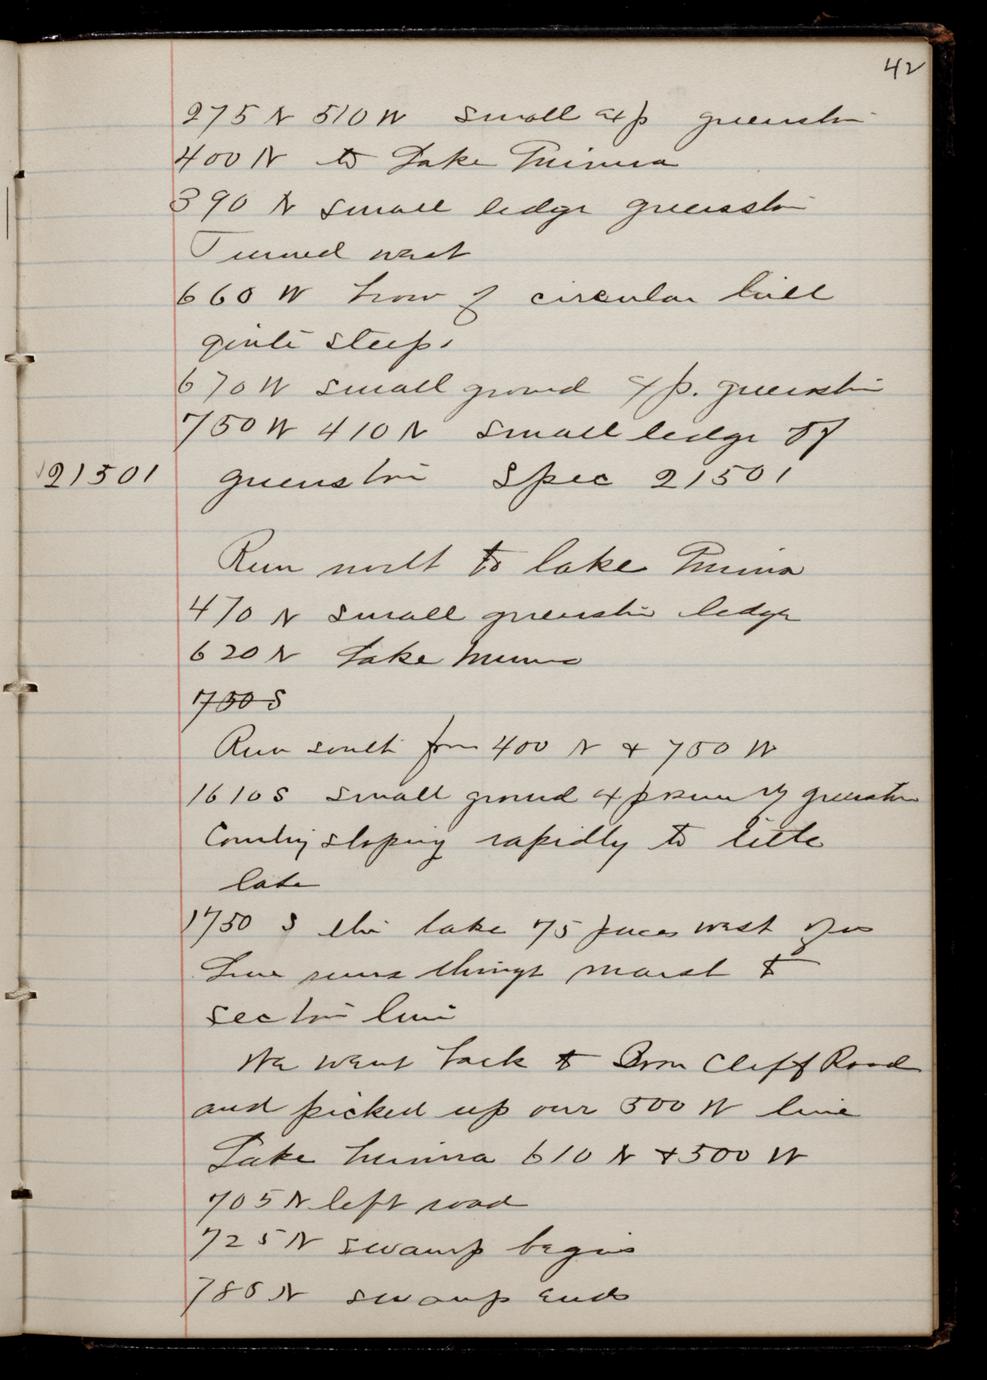 42
275 N 510 W small exp greenston
400 N to Lake Minna
390 N small ledge greenston
Turned west
660 W brow of circular hill
quite steep.
670 W small ground exp. greenston
750 W 410 N small ledge of
21501 greenston Spec 21501
Run north to lake Minna
470 N small greenston ledge
620 N Lake Minna
750 S
Run south from 400 N & 750 W
1610 S small ground exposure of greenston
Country sloping rapidly to little
lake
1750 S the lake 75 paces west of us
Line runs through marsh to
section line
We went back to Cliff Road
and picked up our 500 W line
Lake Minna 610 N & 500 W
705 N left road
725 N swamp begins
785 N swamp ends